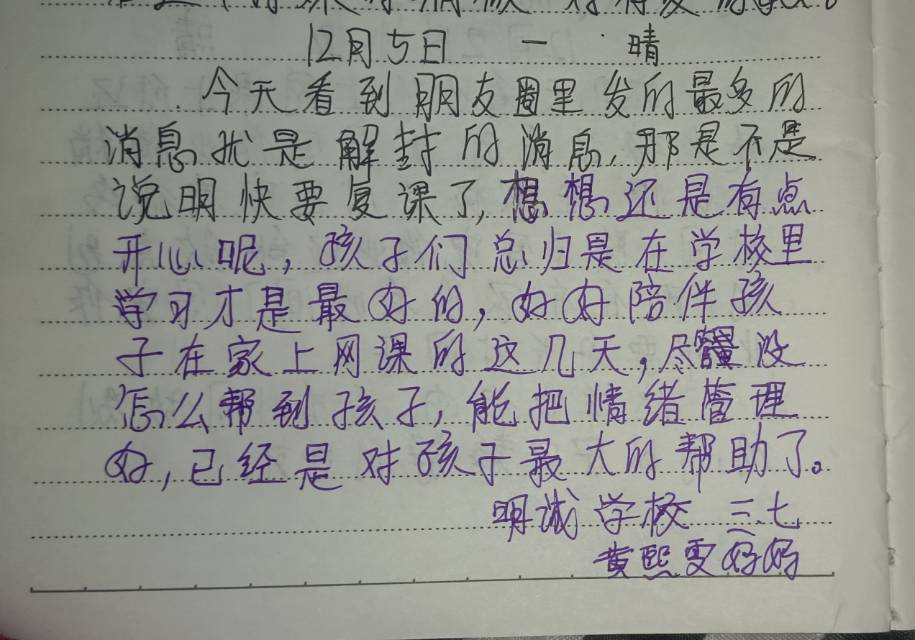 12月5日 一 晴
今天看到朋友圈里发的最多的
消息就是解封的消息,那是不是
说明快要复课了,想想还是有点
开心呢,孩子们总归是在学校里
学习才是最好的,好好陪伴孩
子在家上网课的这几天,尽量没
怎么帮到孩子,能把情绪管理
好,已经是对孩子最大的帮助了。
明诚学校 三.七
黄熙雯妈妈